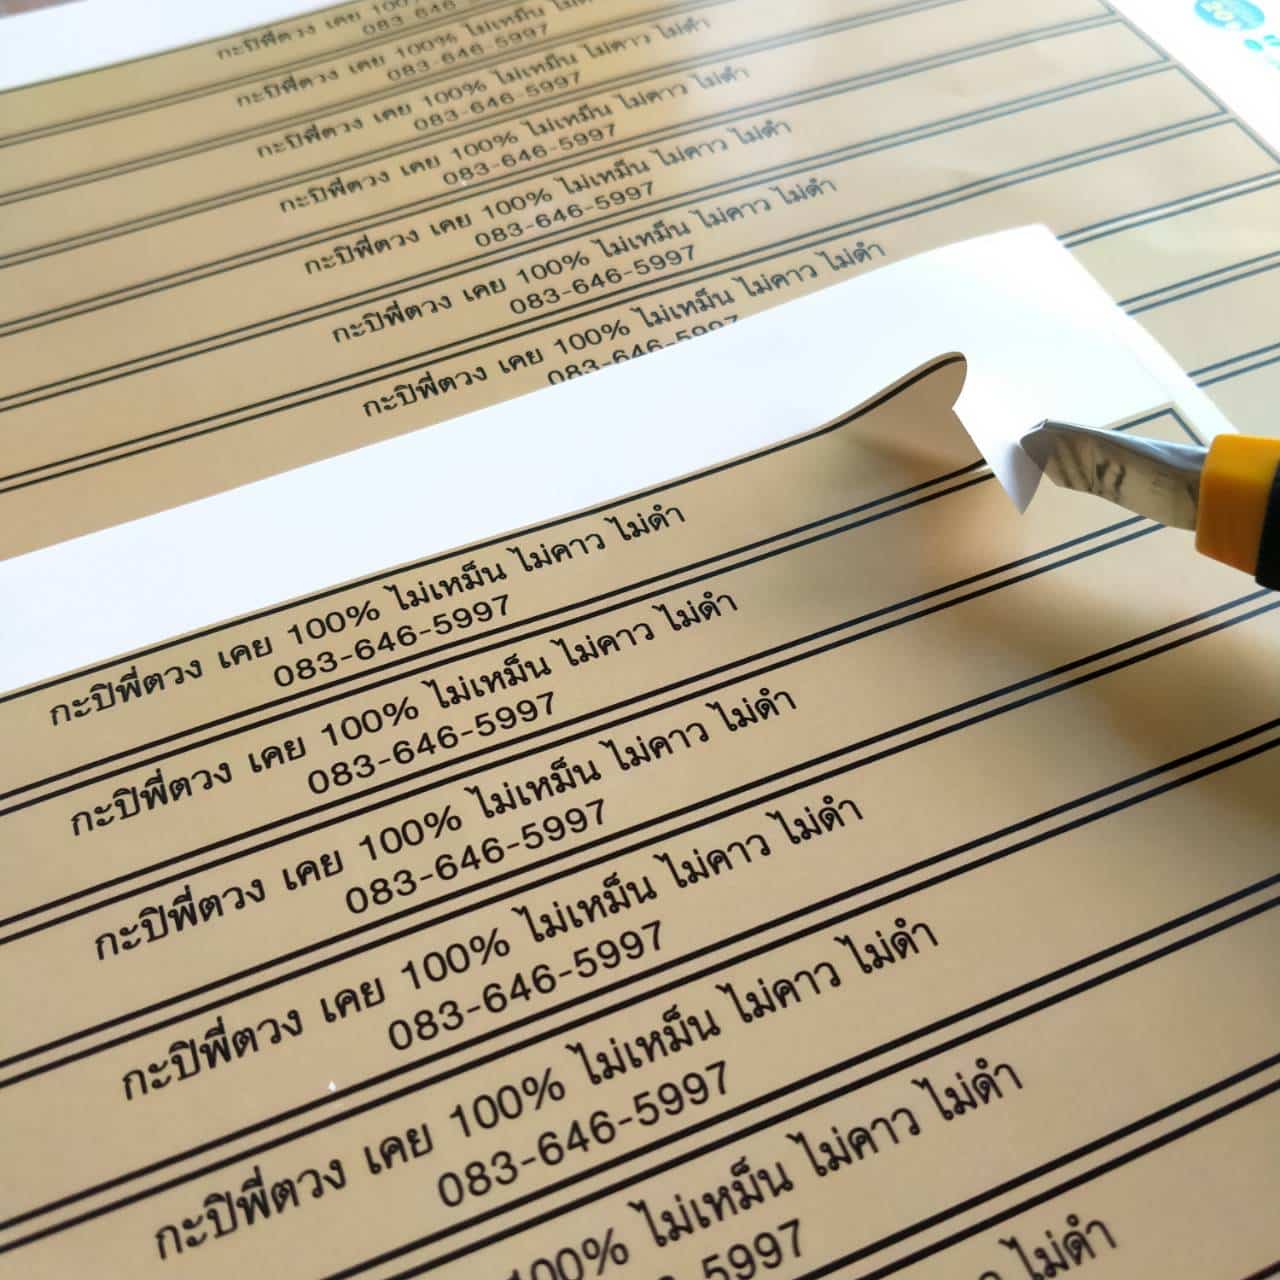 กะปิพี่ตวง เคย 100
083 646
กะปิพี่ตวง เคย 100% ไม่เหม็น
083-646-5997
กะปิพี่ตวง เคย 100% ไม่เหม็น ไม่คาว ไม่ดำ
083-646-5997
กะปิพี่ตวง เคย 100% ไม่เหม็น ไม่คาว ไม่ดำ
083-646-5997
กะปิพี่ตวง เคย 100% ไม่เหม็น ไม่คาว ไม่ดำ
083-646-5997
กะปิพี่ตวง เคย 100% ไม่เหม็น ไม่คาว ไม่ดำ
083-646-5997
กะปิพี่ตวง เคย 100% ไม่เหม็น ไม่คาว ไม่ดำ
083-646-5997
กะปิพี่ตวง เคย 100% ไม่เหม็น ไม่คาว ไม่ดำ
083-646-5997
กะปิพี่ตวง เคย 100% ไม่เหม็น ไม่คาว ไม่ดำ
083-646-5997
กะปิพี่ตวง เคย 100% ไม่เหม็น ไม่คาว ไม่ดำ
083-646-5997
กะปิพี่ตวง เคย 100% ไม่เหม็น ไม่คาว ไม่ดำ
083-646-5997
กะปิพี่ตวง เคย 100% ไม่เหม็น ไม่คาว ไม่ดำ
083-646-5997
100% ไม่เหม็น ไม่คาว ไม่ดำ
5997
ไม่ดำ